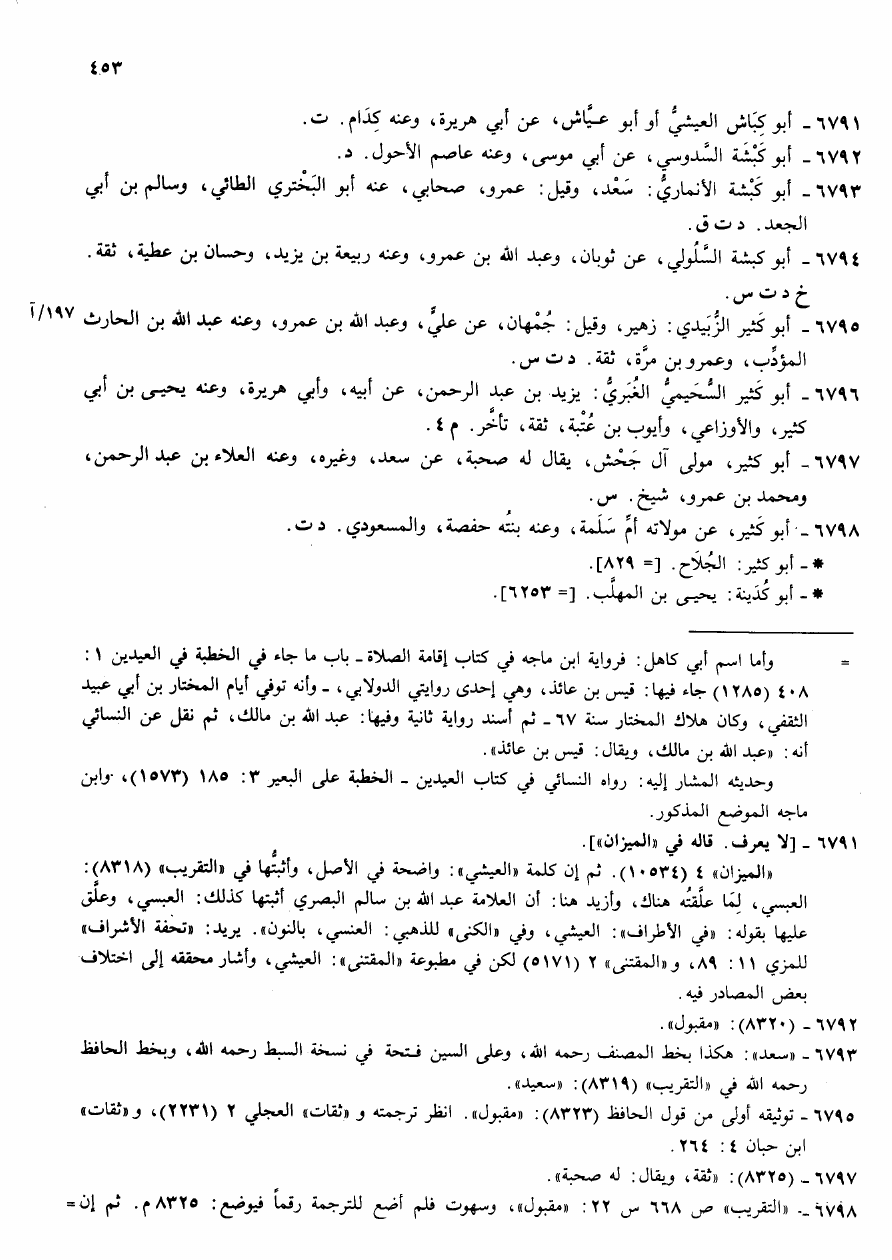 ٤٥٣
٦٧٩١ ـ أبو كِبَاش العيشيُّ أو أبو عيَّاش، عن أبي هريرة، وعنه كِدَام. ت.
٦٧٩٢ ـ أبو كَبْشَة السَّدوسي، عن أبي موسى، وعنه عاصم الأحول. د.
٦٧٩٣ ـ أبو كَبْشة الأنماريُّ: سَعْد، وقيل: عمرو، صحابي، عنه أبو البَخْتري الطائي، وسالم بن أبي
الجعد. د ت ق.
٦٧٩٤ ـ أبو كبشة السَّلُولي، عن ثوبان، وعبد الله بن عمرو، وعنه ربيعة بن يزيد، وحسان بن عطية، ثقة.
خ د ت س.
٦٧٩٥ ـ أبو كَثير الزُّبَيدي: زهير، وقيل: جُمْهان، عن عليٍّ، وعبد الله بن عمرو، وعنه عبد الله بن الحارث ١٩٧/آ
المؤدِّب، وعمرو بن مرَّة، ثقة. د ت س.
٦٧٩٦ ـ أبو كَثير السُّحَيميُّ الغُبَريُّ: يزيد بن عبد الرحمن، عن أبيه، وأبي هريرة، وعنه يحيى بن أبي
كثير، والأوزاعي، وأيوب بن عُتْبة، ثقة، تأخَّر. م ٤.
٦٧٩٧ ـ أبو كثير، مولى آل جَحْش، يقال له صحبة، عن سعد، وغيره، وعنه العلاء بن عبد الرحمن،
ومحمد بن عمرو، شيخ. س.
٦٧٩٨ ـ أبو كَثير، عن مولاته أمِّ سَلَمة، وعنه بنتُه حفصة، والمسعودي. د ت.
* ـ أبو كثير: الجُلَاح. [= ٨٢٩].
* ـ أبو كُدَينة: يحيى بن المهلَّب. [= ٦٢٥٣].
= وأما اسم أبي كاهل: فرواية ابن ماجه في كتاب إقامة الصلاة ـ باب ما جاء في الخطبة في العيدين ١:
٤٠٨ (١٢٨٥) جاء فيها: قيس بن عائذ، وهي إحدى روايتي الدولابي، ـ وأنه توفي أيام المختار بن أبي عبيد
الثقفي، وكان هلاك المختار سنة ٦٧ ـ ثم أسند رواية ثانية وفيها: عبد الله بن مالك، ثم نقل عن النسائي
أنه: «عبد الله بن مالك، ويقال: قيس بن عائذ».
وحديثه المشار إليه: رواه النسائي في كتاب العيدين ـ الخطبة على البعير ٣: ١٨٥ (١٥٧٣)، وابن
ماجه الموضع المذكور.
٦٧٩١ ـ [لا يعرف. قاله في «الميزان»].
«الميزان» ٤ (١٠٥٣٤). ثم إن كلمة «العيشي»: واضحة في الأصل، وأثبتُّها في «التقريب» (٨٣١٨):
العبسي، لِمَا علَّقتُه هناك، وأزيد هنا: أن العلامة عبد الله بن سالم البصري أثبتها كذلك: العبسي، وعلَّق
عليها بقوله: «في الأطراف»: العيشي، وفي «الكنى» للذهبي: العنسي، بالنون». يريد: «تحفة الأشراف»
للمزي ١١: ٨٩، و«المقتنى» ٢ (٥١٧١) لكن في مطبوعة «المقتنى»: العيشي، وأشار محققه إلى اختلاف
بعض المصادر فيه.
٦٧٩٢ ـ (٨٣٢٠): «مقبول».
٦٧٩٣ ـ «سعد»: هكذا بخط المصنف رحمه الله، وعلى السين فتحة في نسخة السبط رحمه الله، وبخط الحافظ
رحمه الله في «التقريب» (٨٣١٩): «سعيد».
٦٧٩٥ ـ توثيقه أولى من قول الحافظ (٨٣٢٣): «مقبول». انظر ترجمته و «ثقات» العجلي ٢ (٢٢٣١)، و«ثقات»
ابن حبان ٤: ٢٦٤.
٦٧٩٧ ـ (٨٣٢٥): «ثقة، ويقال: له صحبة».
٦٧٩٨ ـ «التقريب» ص ٦٦٨ س ٢٢: «مقبول»، وسهوت فلم أضع للترجمة رقماً فيوضع: ٨٣٢٥ م. ثم إن=